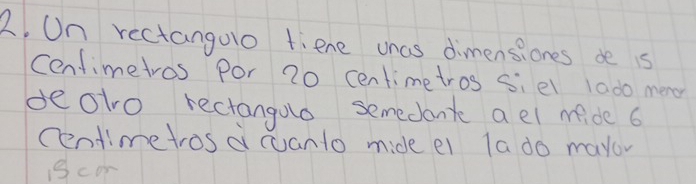 2. Un rectangulo tiene unas dimensiones de 15
Centimetros Por 20 centimetros si el lado menor
de otro rectangulo semejante a el mide 6
Centimetros d cuanto mide el lado mayor
15 cm